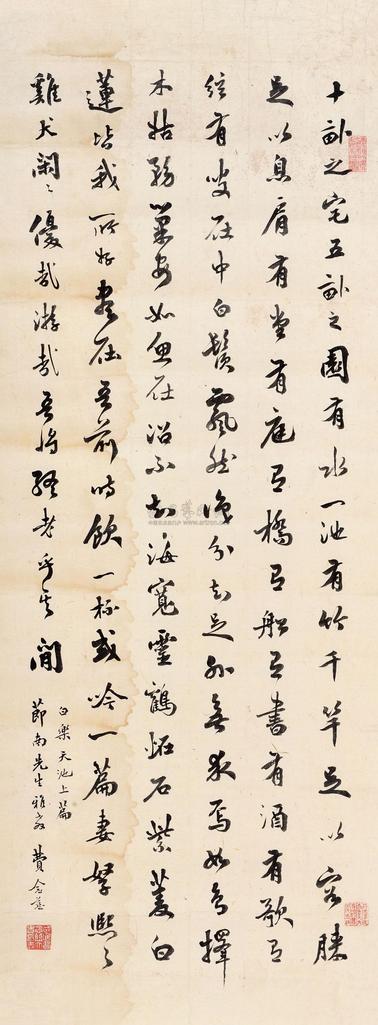 十畝之宅五畝之園有水一池有竹千竿足以容膝
足以息肩有堂有庭有橋有船有書有酒有歌有
絃有叟在中白鬚飄然識分知足外無求焉如鳥擇
木姑務巢安如魚在沼不知海寬靈鶴怪石紫菱白
蓮皆我所好盡在吾前時飲一杯或吟一篇妻孥熙々
雞犬閑々優哉游哉吾將終老乎其間
白樂天池上篇
節南先生雅 費念慈